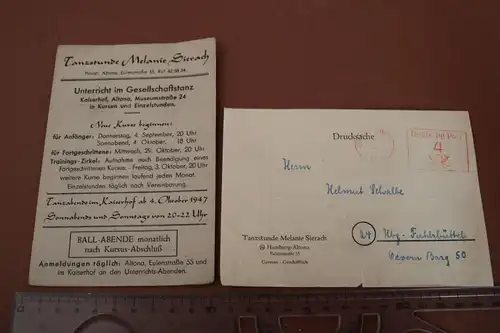 Tanzstunde Melanie Sierach
Privat: Altona, Eulenstraße 55, Ruf 42 58 24
Unterricht im Gesellschaftstanz
Kaiserhof, Altona, Museumstraße 24
in Kursen und Einzelstunden.
Neue Kurse beginnen:
für Anfänger: Donnerstag, 4. September, 20 Uhr
Sonnabend, 4. Oktober, 18 Uhr
für Fortgeschrittene: Mittwoch, 26. Oktober, 20 Uhr
Trainings-Zirkel: Aufnahme nach Beendigung eines
Fortgeschrittenen Kursus. - Freitag, 3. Oktober, 20 Uhr
weitere Kurse beginnen laufend jeden Monat.
Einzelstunden täglich nach Vereinbarung.
Tanzabende im Kaiserhof ab 4. Oktober 1947
Sonnabends und Sonntags von 20-22 Uhr
BALL-ABENDE monatlich
nach Kursus-Abschluß
Anmeldungen täglich: Altona, Eulenstraße 55 und
im Kaiserhof an den Unterrichts-Abenden.
Drucksache
Deutsche Post
4
Herrn
Helmut Schalbe
Tanzstunde Melanie Sierach
Hamburg-Altona
Eulenstraße 55
24 Hbg.-Fuhlsbüttel
50